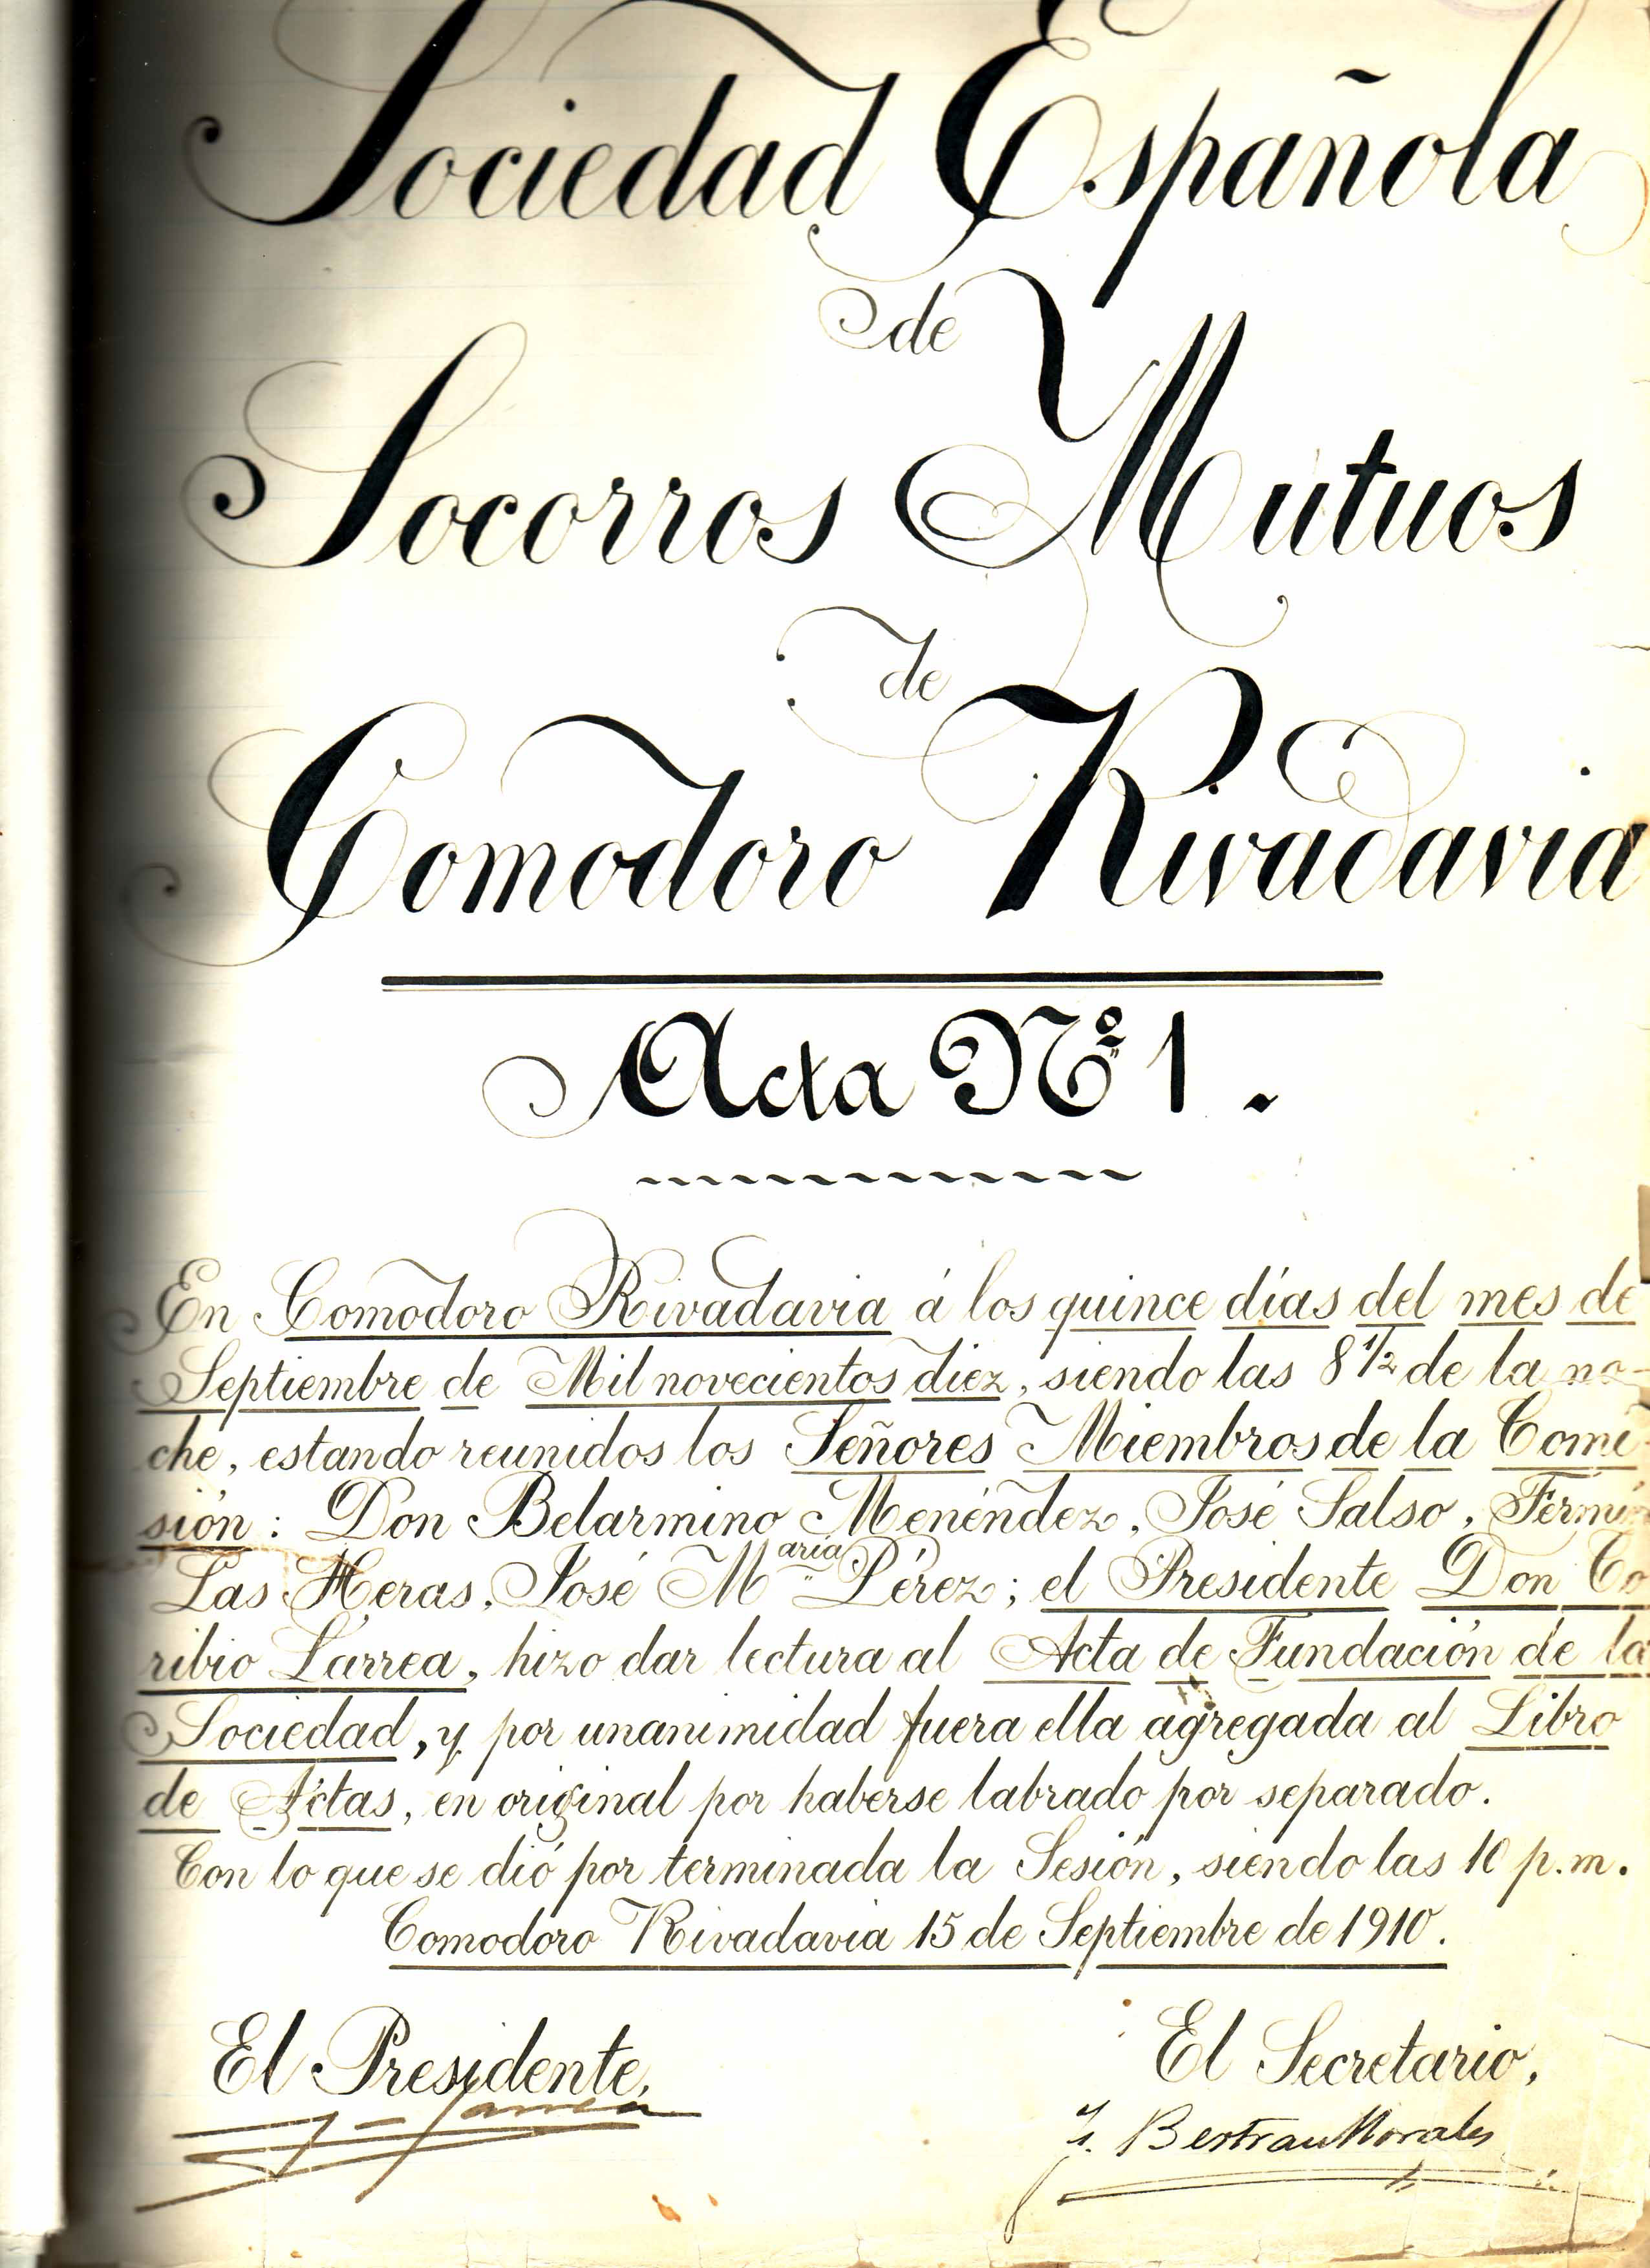 Sociedad Española
de
Socorros Mútuos
de
Comodoro Rivadavia
Acta Nº 1.
En Comodoro Rivadavia á los quince días del mes de
Septiembre de Mil novecientos diez, siendo las 8 1/2 de la no-
che, estando reunidos los Señores Miembros de la Comi-
sión: Don Belarmino Menéndez, José Salso, Fermín
Las Heras, José Maria Pérez; el Presidente Don Co
ribio Larrea, hizo dar lectura al Acta de Fundación de la
Sociedad, y por unanimidad fuera ella agregada al Libro
de Actas, en original por haberse labrado por separado.
Con lo que se dió por terminada la Sesión, siendo las 10 p.m.
Comodoro Rivadavia 15 de Septiembre de 1910.
El Presidente, El Secretario,
Larrea Bertran Morales